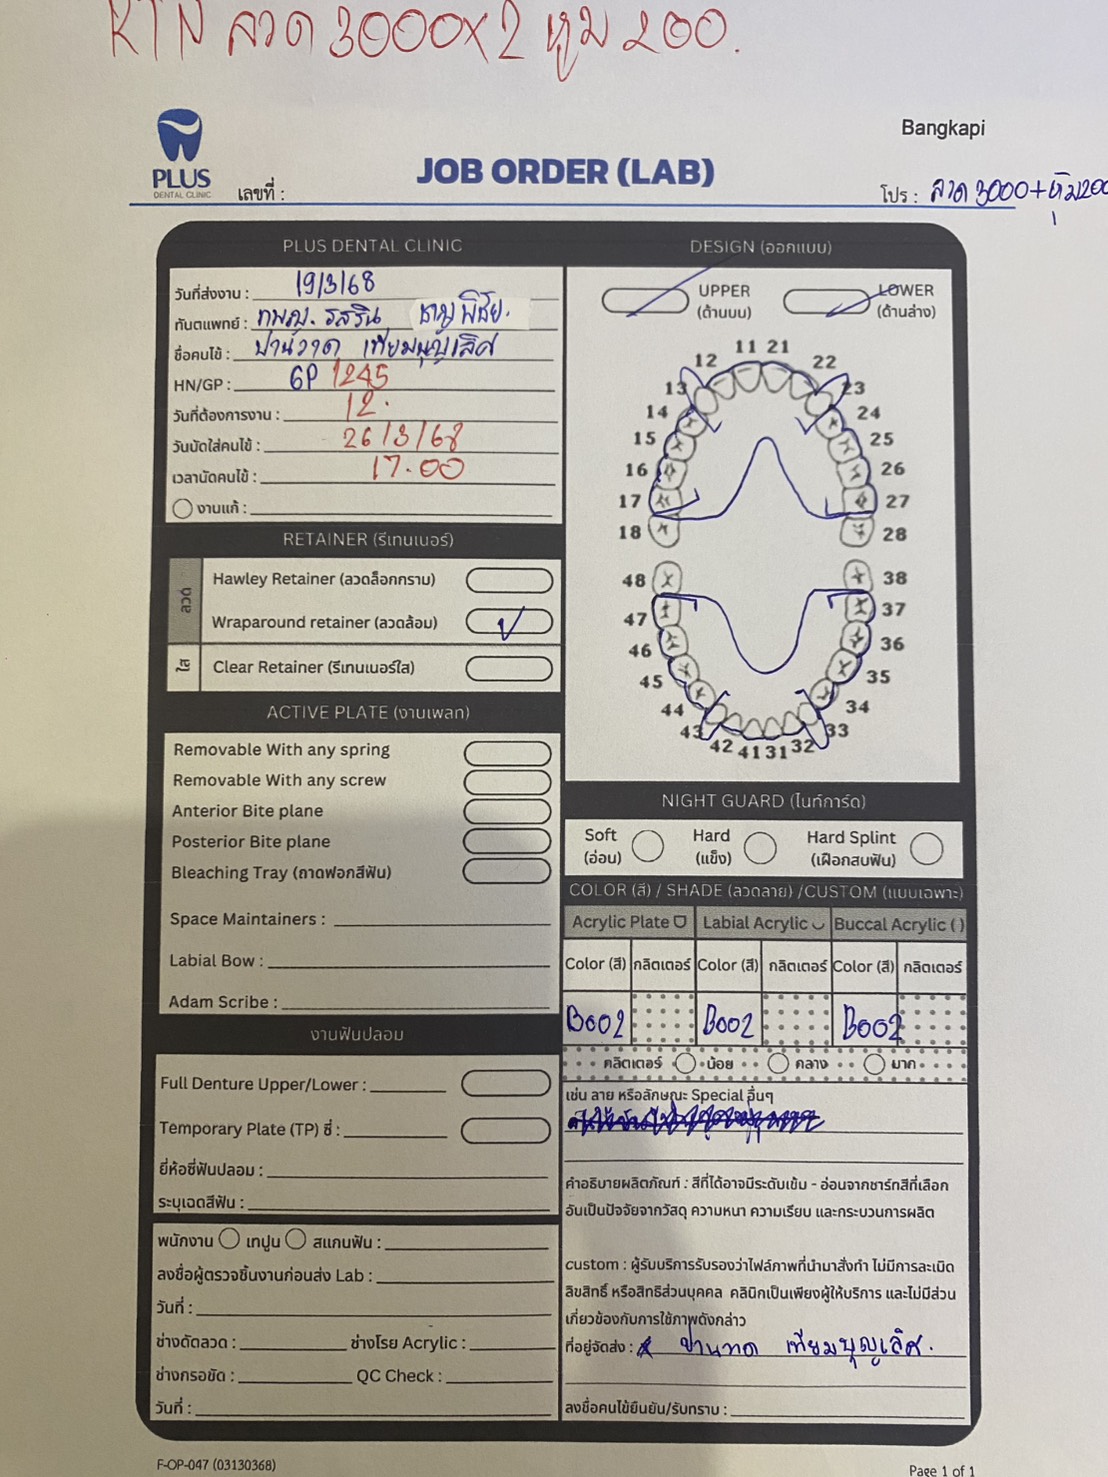 RTN ลวด 3000x2 หุ้ม 200.
Bangkapi
PLUS
DENTAL CLINIC
เลขที่ :
JOB ORDER (LAB)
โปร : ลวด 3000+หุ้ม200
PLUS DENTAL CLINIC
วันที่ส่งงาน : 19/3/68
ทันตแพทย์ : ทพญ. รสริน ชาญพิชัย.
ชื่อคนไข้ : ปานวาด เทียมบุญเลิศ
HN/GP : GP 1245
วันที่ต้องการงาน : 12.
วันนัดใส่คนไข้ : 26/3/68
เวลานัดคนไข้ : 17.00
งานแก้ :
RETAINER (รีเทนเนอร์)
ลวด
Hawley Retainer (ลวดล็อกกราม)
Wraparound retainer (ลวดล้อม)
ใส
Clear Retainer (รีเทนเนอร์ใส)
ACTIVE PLATE (งานเพลท)
Removable With any spring
Removable With any screw
Anterior Bite plane
Posterior Bite plane
Bleaching Tray (ถาดฟอกสีฟัน)
Space Maintainers :
Labial Bow :
Adam Scribe :
งานฟันปลอม
Full Denture Upper/Lower :
Temporary Plate (TP) ซี่ :
ยี่ห้อซี่ฟันปลอม :
ระบุเฉดสีฟัน :
พนักงาน เทปูน สแกนฟัน :
ลงชื่อผู้ตรวจชิ้นงานก่อนส่ง Lab :
วันที่ :
ช่างดัดลวด : ช่างโรย Acrylic :
ช่างกรอขัด : QC Check :
วันที่ :
DESIGN (ออกแบบ)
UPPER (ด้านบน)
LOWER (ด้านล่าง)
11 21
12 22
13 23
14 24
15 25
16 26
17 27
18 28
48 38
47 37
46 36
45 35
44 34
43 33
42 41 31 32
NIGHT GUARD (ไนท์การ์ด)
Soft (อ่อน)
Hard (แข็ง)
Hard Splint (เฝือกสบฟัน)
COLOR (สี) / SHADE (ลวดลาย) /CUSTOM (แบบเฉพาะ)
Acrylic Plate Labial Acrylic Buccal Acrylic ( )
Color (สี) กลิตเตอร์ Color (สี) กลิตเตอร์ Color (สี) กลิตเตอร์
B002 B002 B002
กลิตเตอร์ น้อย กลาง มาก
เช่น ลาย หรือลักษณะ Special อื่นๆ
คำอธิบายผลิตภัณฑ์ : สีที่ได้อาจมีระดับเข้ม - อ่อนจากชาร์ทสีที่เลือก
อันเป็นปัจจัยจากวัสดุ ความหนา ความเรียบ และกระบวนการผลิต
custom : ผู้รับบริการรับรองว่าไฟล์ภาพที่นำมาสั่งทำ ไม่มีการละเมิด
ลิขสิทธิ์ หรือสิทธิส่วนบุคคล คลินิกเป็นเพียงผู้ให้บริการ และไม่มีส่วน
เกี่ยวข้องกับการใช้ภาพดังกล่าว
ที่อยู่จัดส่ง : ปานวาด เทียมบุญเลิศ.
ลงชื่อคนไข้ยืนยัน/รับทราบ :
F-OP-047 (03130368)
Page 1 of 1